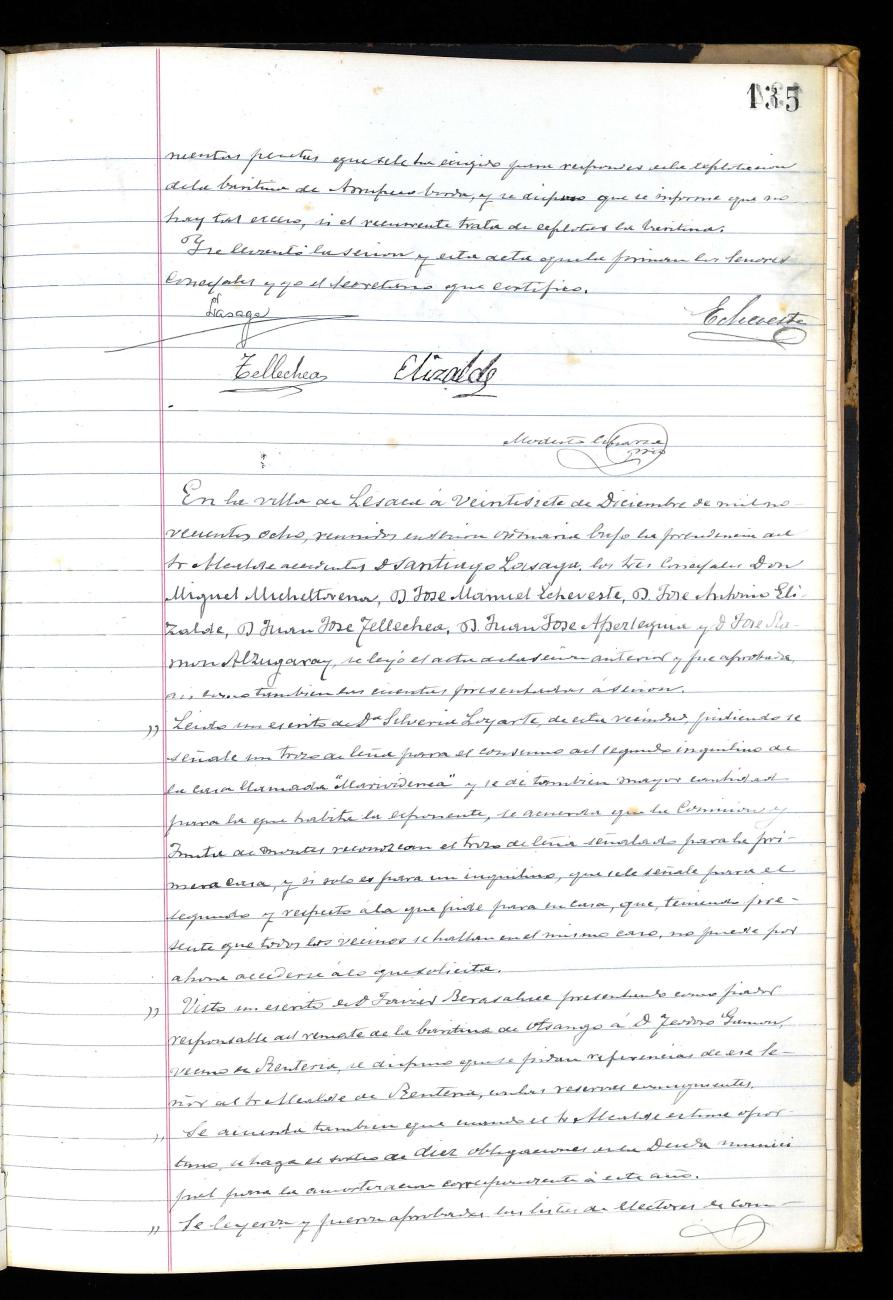 135
nientas pesetas que se le ha exigido para responder de la explotacion
de la baritina de borda, y se dispuso que se informe que no
hay tal exceso, si el recurrente trata de explotar la baritina.
Y se levantó la sesion y esta acta que la firman los Señores
Concejales y yo el Secretario que certifico.
Lasaga
Echeveste
Tellechea Elizalde
Modesto
srio
En la villa de Lesaca á veintisiete de Diciembre de mil no-
vecientos ocho, reunidos en sesion ordinaria bajo la presidencia del
Sr Alcalde accidental D Santiago Lasaga, los Sres Concejales Don
Miguel Micheltorena, D Jose Manuel Echeveste, D. Jose Antonio Eli-
zalde, D Juan Jose Tellechea, D. Juan Jose Apezteguia y D Jose Ra-
mon Alzugaray, se leyó el acta de la sesion anterior y fue aprobada,
asi como tambien las cuentas presentadas á sesion.
" Leido un escrito de Dª Silveria Loyarte, de esta vecindad, pidiendo se
señale un trozo de leña para el consumo del segundo inquilino de
la casa llamada "Marividenea" y se dé tambien mayor cantidad
para la que habita la exponente, se acuerda que la Comision y
Junta de montes reconozcan el trozo de leña señalado para la pri-
mera casa, y si solo es para un inquilino, que se le señale para el
segundo y respecto á la que pide para su casa, que, teniendo pre-
sente que todos los vecinos se hallan en el mismo caso, no puede por
ahora accederse á lo que solicita.
" Visto un escrito de D Javier Berasaluce presentando como fiador
responsable del remate de la baritina de Otsango á D. Teodoro Gamon,
vecino de Renteria, se dispuso que se pidan referencias de ese Se-
ñor al Sr Alcalde de Renteria, con las reservas consiguientes.
" Se acuerda tambien que cuando el Sr Alcalde estime opor-
tuno, se haga el sorteo de diez obligaciones de la Deuda munici
pal para la amortizacion correspondiente á este año.
" Se leyeron y fueron aprobadas las listas de electores de com-